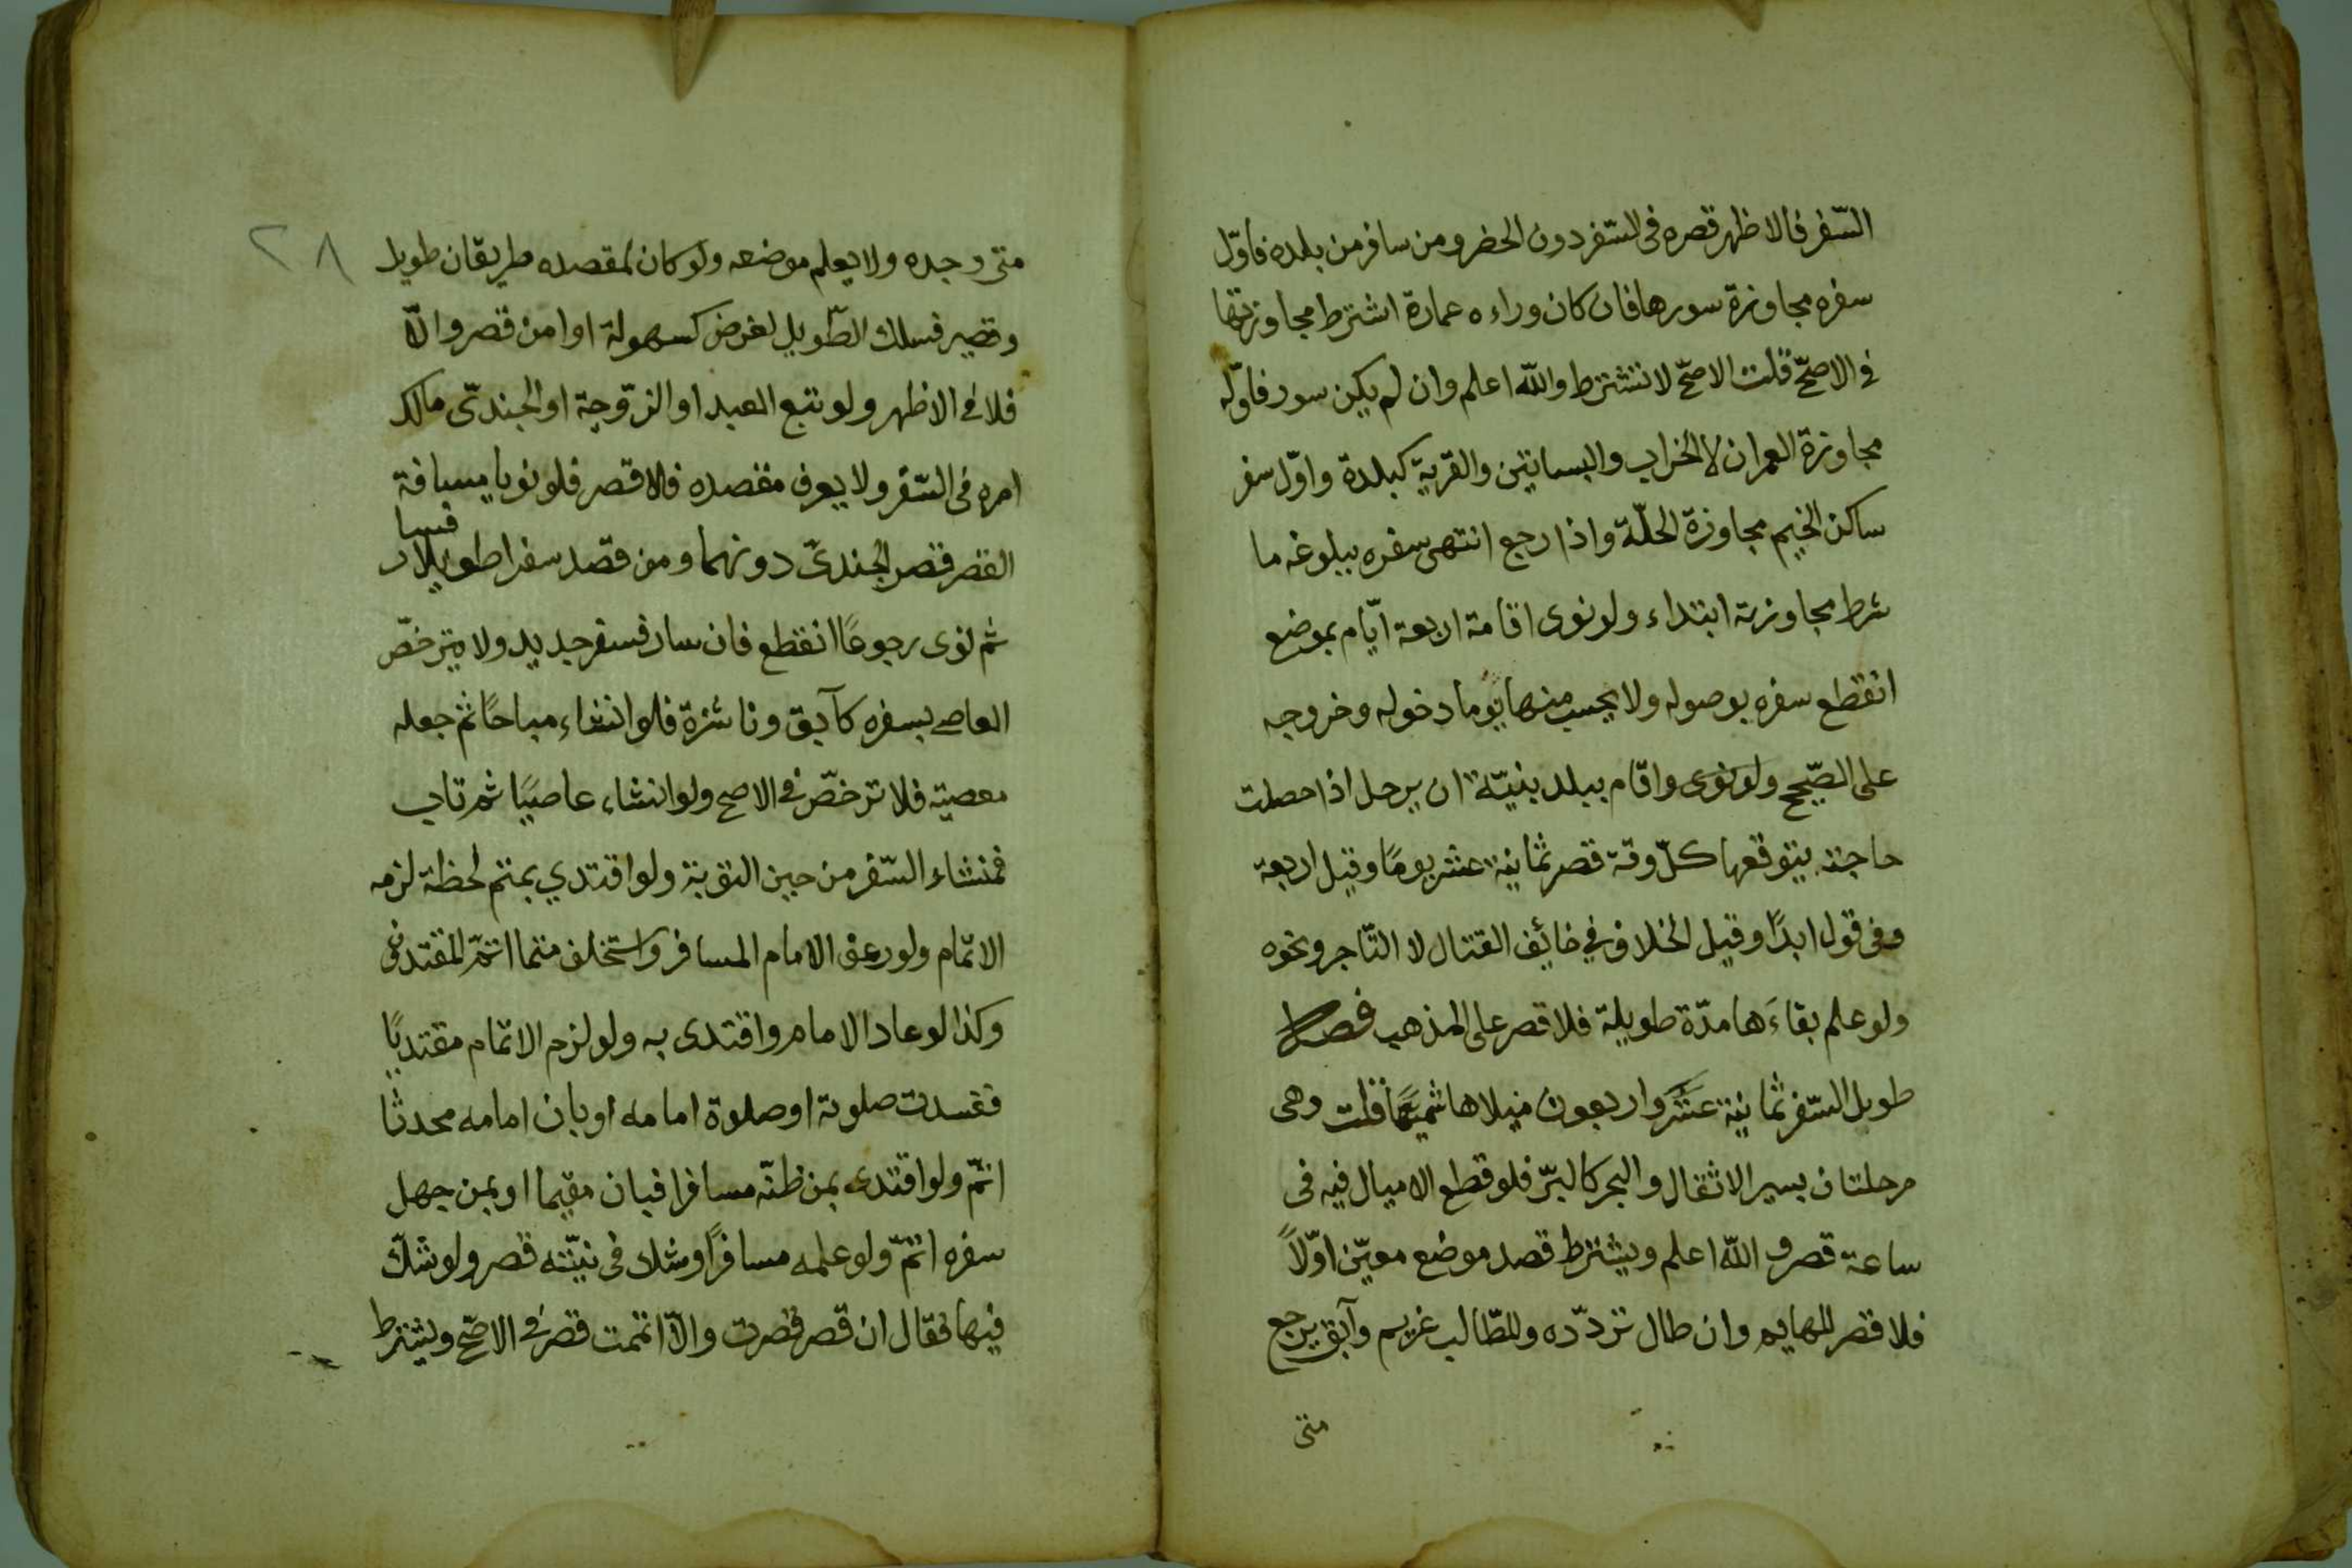 السّفر فالاظهر قصره فى السّفر دون الحضر ومن سافر من بلده فاوّل
سفره مجاوزة سورها فان كان وراءه عمارة اشترط مجاوزتها
فى الاصحّ قلت الاصحّ لا تشترط والله اعلم وان لم يكن سور فاوّله
مجاوزة العمران لا الخراب والبساتين والقرية كبلدة واوّل سفر
ساكن الخيم مجاوزة الحلّة واذا رجع انتهى سفره ببلوغه ما
شرط مجاوزته ابتداء ولو نوى اقامة اربعة ايّام بموضع
انقطع سفره بوصوله ولا يحسب منها يوما دخوله وخروجه
على الصّحيح ولو نوى واقام ببلد بنيّة ان يرحل اذا حصلت
حاجته يتوقعها كلّ وقة قصر ثمانية عشر يومًا وقيل اربعة
وفى قول ابدًا وقيل الخلاف في خائف القتال لا التّاجر ونحوه
ولو علم بقاءَها مدّة طويلة فلا قصر على المذهب فصل
طويل السّفر ثمانية عشر واربعون ميلا هاشميّة قلت وهى
مرحلتان بسير الاثقال والبحر كالبرّ فلو قطع الاميال فيه فى
ساعة قصر والله اعلم ويشترط قصد موضع معيّن اوّلاً
فلا قصر للهايم وان طال تردّده وللطّالب غريم وآبق يرجع
متى
٢٨
متى وجده ولا يعلم موضعه ولو كان لمقصده طريقان طويل
وقصير فسلك الطّويل لغرض كسهولة او امن قصر والاّ
فلا فى الاظهر ولو تبع العبد او الزّوجة او الجندىّ مالك
امره فى السّفر ولا يعرف مقصده فلا قصر فلو نويا مسافة
القصر قصر الجندىّ دونهما ومن قصد سفرا طويلا فسار
ثم نوى رجوعًا انقطع فان سار فسفر جديد ولا يترخّص
العاصى بسفره كآبق وناشزة فلو انشاء مباحًا ثم جعله
معصيته فلا ترخّص فى الاصح ولو انشاء عاصيًا ثم تاب
فمنشاء السّفر من حين التوبة ولو اقتدي بمتم لحظة لزمه
الاتمام ولو رعف الامام المسافر واستخلف متمما اتمّ المقتدى
وكذا لو عاد الامام واقتدى به ولو لزم الاتمام مقتديًا
ففسدت صلوته او صلوة امامه او بان امامه محدثا
اتمّ ولو اقتدى بمن ظنّه مسافرا فبان مقيما او بمن جهل
سفره اتمّ ولو علمه مسافرًا وشك فى نيّته قصر ولو شكّ
فيها فقال ان قصر قصرت والاّ اتممت قصر فى الاصحّ ويشترط